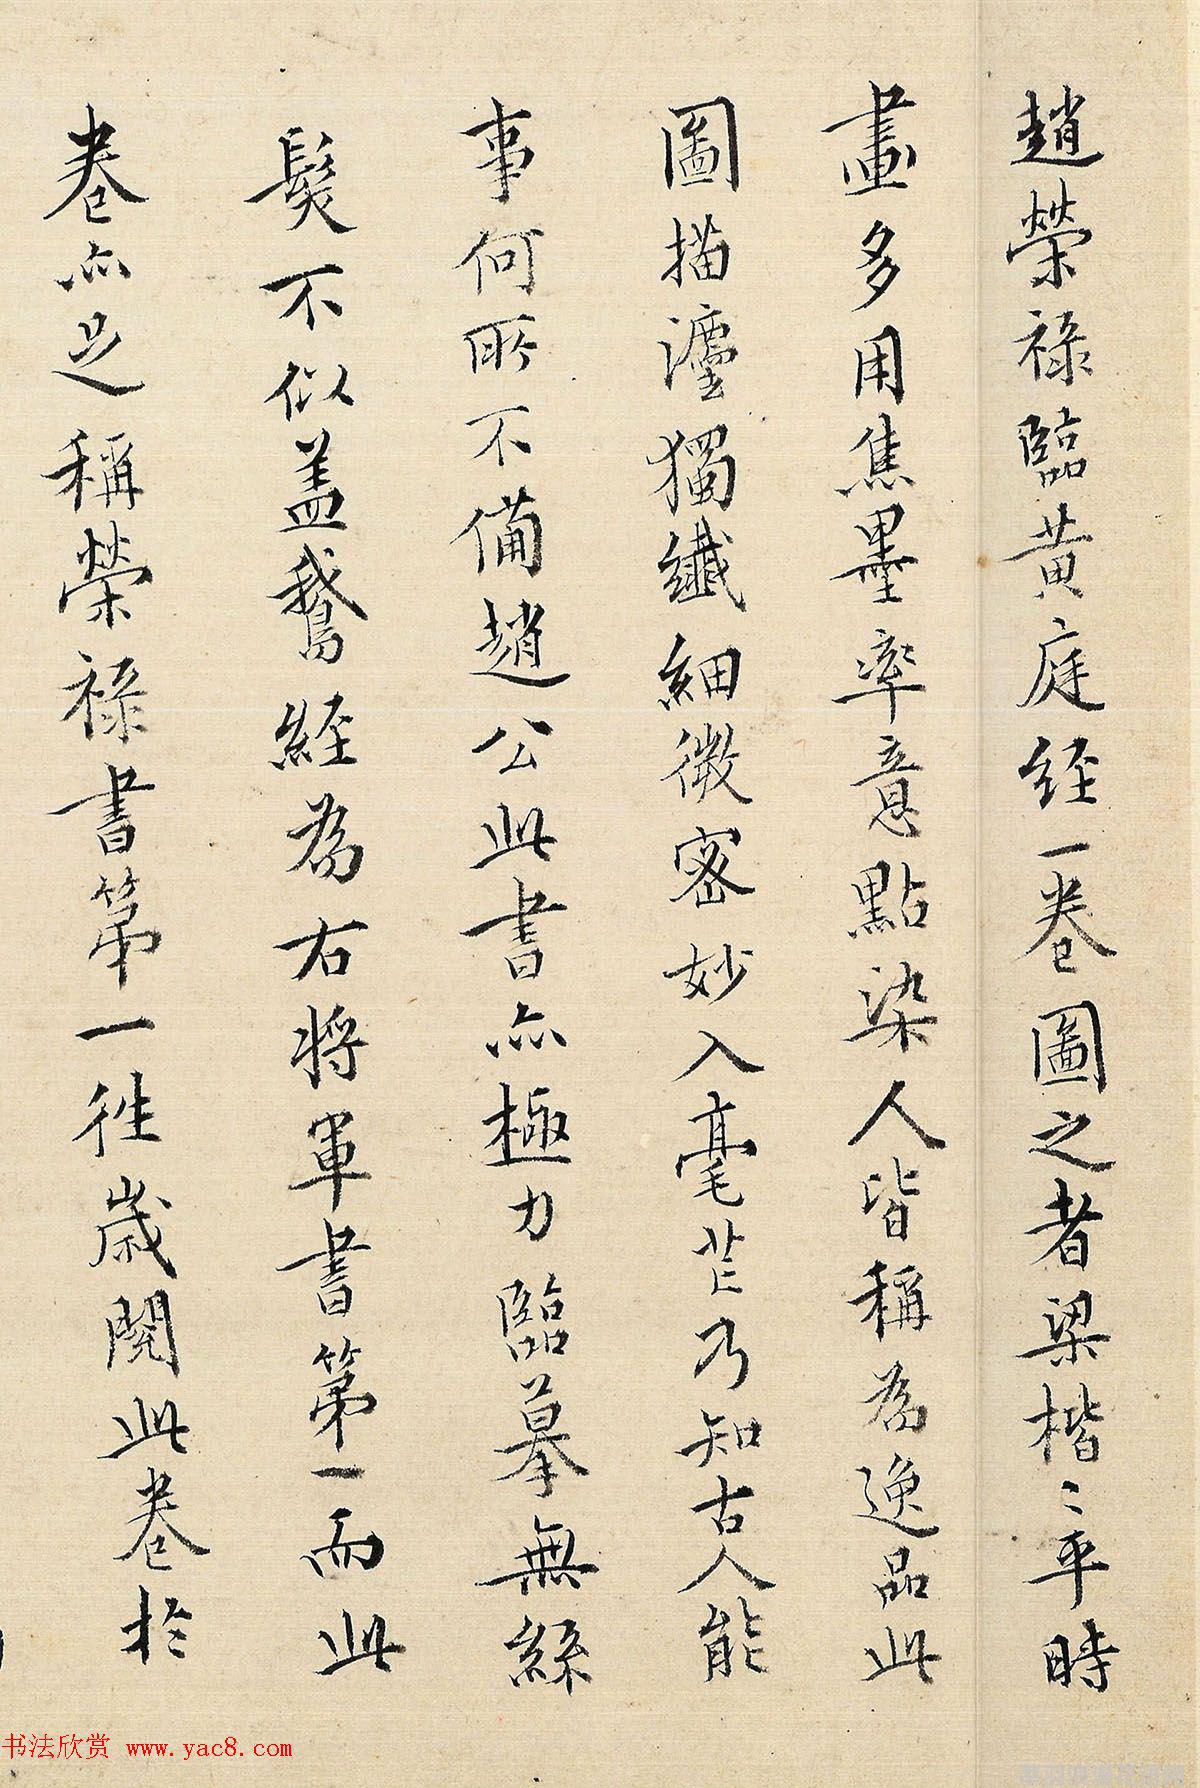 趙榮祿臨黃庭经一卷圖之者梁楷〻平時
畫多用焦墨率意點染人皆稱為逸品此
圖描瀍獨纖細微密妙入毫芒乃知古人能
事何所不備趙公此書亦極力臨摹無絲
髮不似盖鵞經為右将軍書第一而此
卷亦足稱榮祿書第一往歲閱此卷於
书法欣赏 www.yac8.com